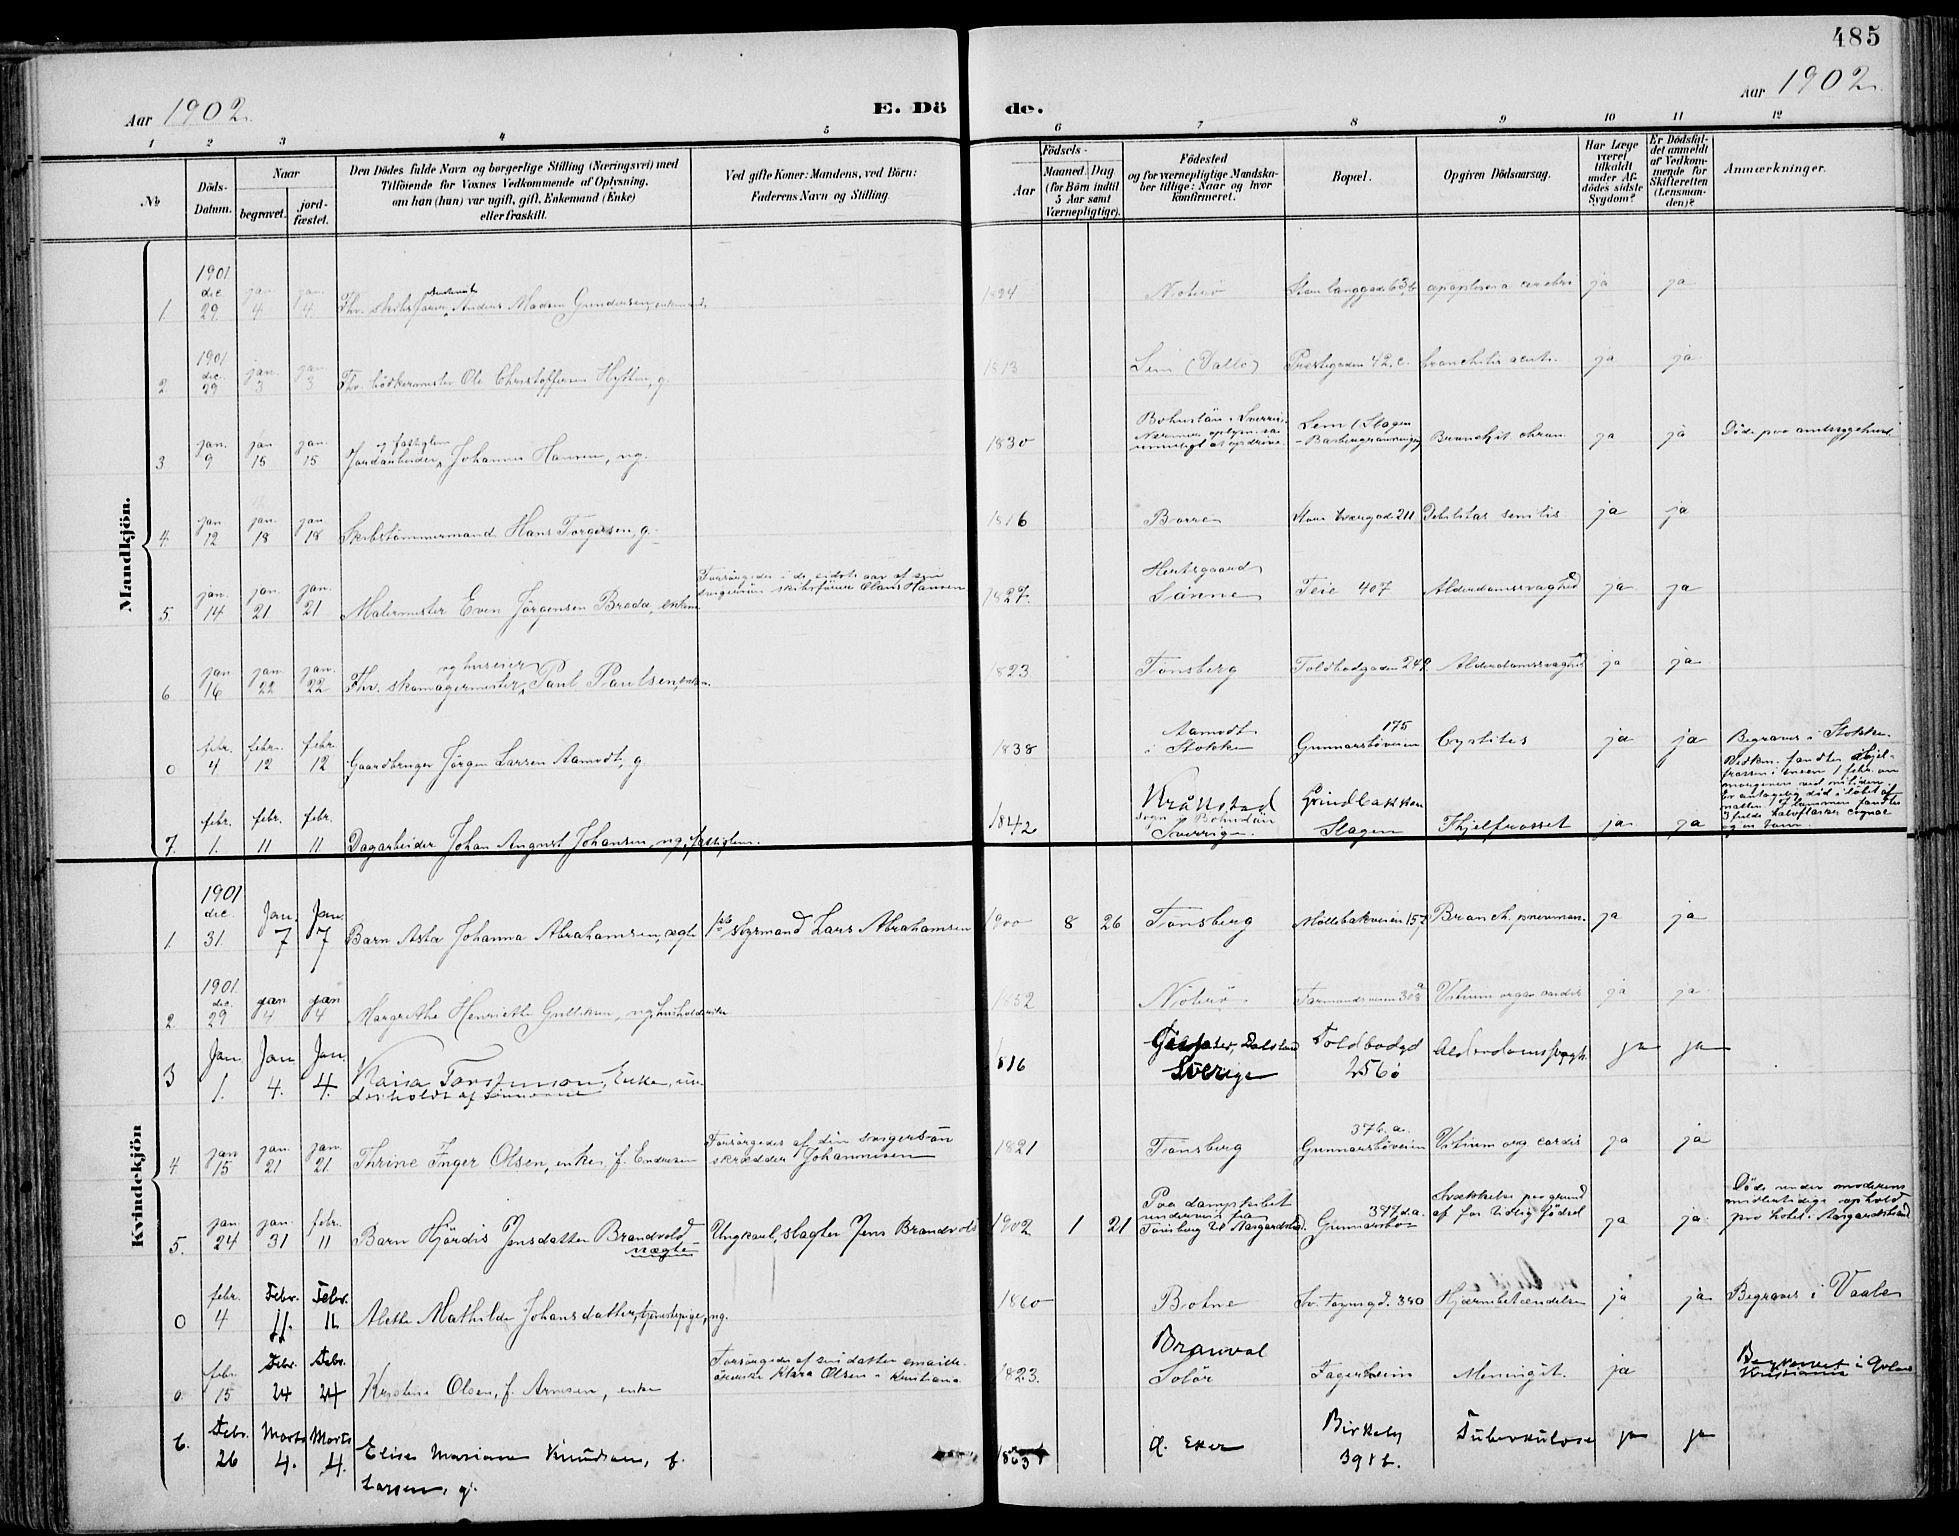 485
Aar 1902.
E. Dö
de.
Aar 1902.
1 2 3 4 5 6 7 8 9 10 11 12
№
Döds-
Datum.
Naar
begravet.
jord-
fæstet.
Den Dödes fulde Navn og borgerlige Stilling (Næringsvei) med
Tilföiende for Voxnes Vedkommende af Oplysning,
om han (hun) var ugift, gift, Enkemand (Enke)
eller fraskilt.
Ved gifte Koner: Mandens, ved Börn:
Faderens Navn og Stilling
Aar
Födsels-
Maaned. Dag
(for Börn indtil
5 Aar samt
Værnepligtige).
Födested
og for værnepligtige Mandska-
ber tillige: Naar og hvor
konfirmeret.
Bopæl.
Opgiven Dödsaarsag.
Har Læge
været
tilkaldt
under Af-
dödes sidste
Sygdom?
Er Dödsfal-
det anmeldt
af Vedkom-
mende for
Skifteretten
(Lensman-
den)?
Anmærkninger.
Mandkjön.
1. 1901 dec. 29. jan. 4 jan. 4. Fhv. Anders Madsen Gundersen, enkemand. 1824 Nøterø Store langgade 63,b apoplexia cerebri ja ja
2 1901 dec. 29 jan. 3 jan. 3 Fhv. bödkermester Ole Christoffersen Hytten, g. 1813 Sem (Vallø) Præstegaden 42, c. bronchitis acut. ja ja
3 jan. 9 jan 15 jan. 15 Jordarbeider og fattiglem Johannes Hansen, ug. 1830 Bohuslän i Sverrig. Sem (Slagen Bronchit. chron. ja ja Døde paa amtssygehuset
4. jan 12 jan. 18 jan. 18 Skibstömmermand Hans Torgersen, g. 1816 Borre 211 Debilitas senilis ja ja
5. jan. 14 jan. 21 jan. 21 Malermester Even Jörgensen Bredæ, enkem. Forsørgedes i de sidste aar af sin
svigersön skibsförer Claus Hansen 1827. Sänne Teie 407 Alderdomssvaghed ja ja
6 jan 16 jan. 22 jan. 22 Fhv. skomagermester og huseier Paul Paulsen, enkem. 1823 Tönsberg Toldbodgaden 249 Alderdomssvaghed ja ja
0 febr. 4 febr. 12 febr. 12 Gaardbruger Jörgen Larsen Aamodt, g. 1838 Aamodt
i Stokke Gunnarsböveien 175 Cystitis ja ja Begraves i Stokke.
7. febr. 1. febr. 11 febr. 11 Dagarbeider Johan August Johansen, ug., fattiglem. 1842 Krokstad
sogn Bohuslän
Sverrige. Grindbakken
Slagen Ihjelfrosset ja ja Vedkom. fandtes ihjel-
frossen i sneen 1 febr. om
morgenen
Kvindekjön
1. 1901 dec. 31. Jan. 7 Jan. 7 Barn Asta Johanna Abrahamsen, ægte Styrmand Lars Abrahamsen 1900 8 26 Tönsberg Möllebakveien 157 Bronch. pneumon. ja ja
2 1901. dec. 29 jan 4 jan 4 Margrethe Henriette Gulliksen, ug., husholderske 1852 Nöterö Farmandsveien 308 a Vitium organ. cordis ja ja
3 Jan. 1. Jan 4. Jan 4. Kaisa Torstenson, Enke, un-
derholdt af Sönnerne 1816 Dalsland
Sverige Toldbodgd
256 Alderdomssvagh. ja ja
4 jan 15 jan. 21 jan. 21 Thrine Inger Olsen, enke, f. Endresen Forsörgedes af din svigersön
skrædder Johannesen 1821 Tönsberg 376.a.
Gunnarsböveien Vitium org cordis ja ja
5. jan. 24 jan. 31 febr. 11 Barn Hjördis Jensdatter Brandvold
uægte Ungkarl, slagter Jens Brandvold 1902 1 21 Paa dampskibet
underveis fra
Tönsberg til Aasgaardstrand. 397.d.a.
Gunnarsbö Svækkelse paa grund
af for tidlig födsel ja ja Döde under moderens
midlertidige ophold
paa hotel i Aasgaardstrand
0 febr. 4 Febr. 11. Febr. 11 Alette Mathilde Johansdatter, tjenestepige, ug. 1860 Botne Sv. Foynsgd. 340 Hjernebetændelse ja ja Begraves i Vaale
0 febr. 15 Febr. 24 Febr. 24 Kristine Olsen, f. Arnesen, enke Forsörgedes af sin datter
Klara Olsen i Kristiania 1823. Branval
Solör Fagerheim Meningit. ja Begravet i
Kristiania
6. Febr. 26 Marts 4. Marts 4. Elise Mariane Knudsen, f.
Larsen, g. 1863 Ø. Eker Birkely
391 b. Tuberkulose ja ja